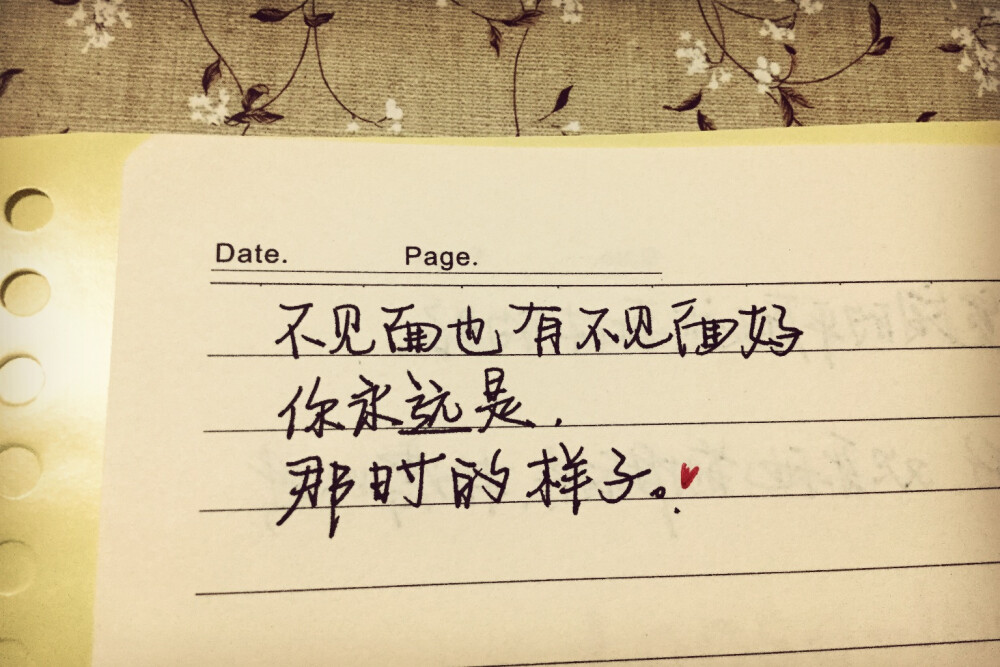 Date. Page.
不见面也有不见面好
你永远是.
那时的样子。